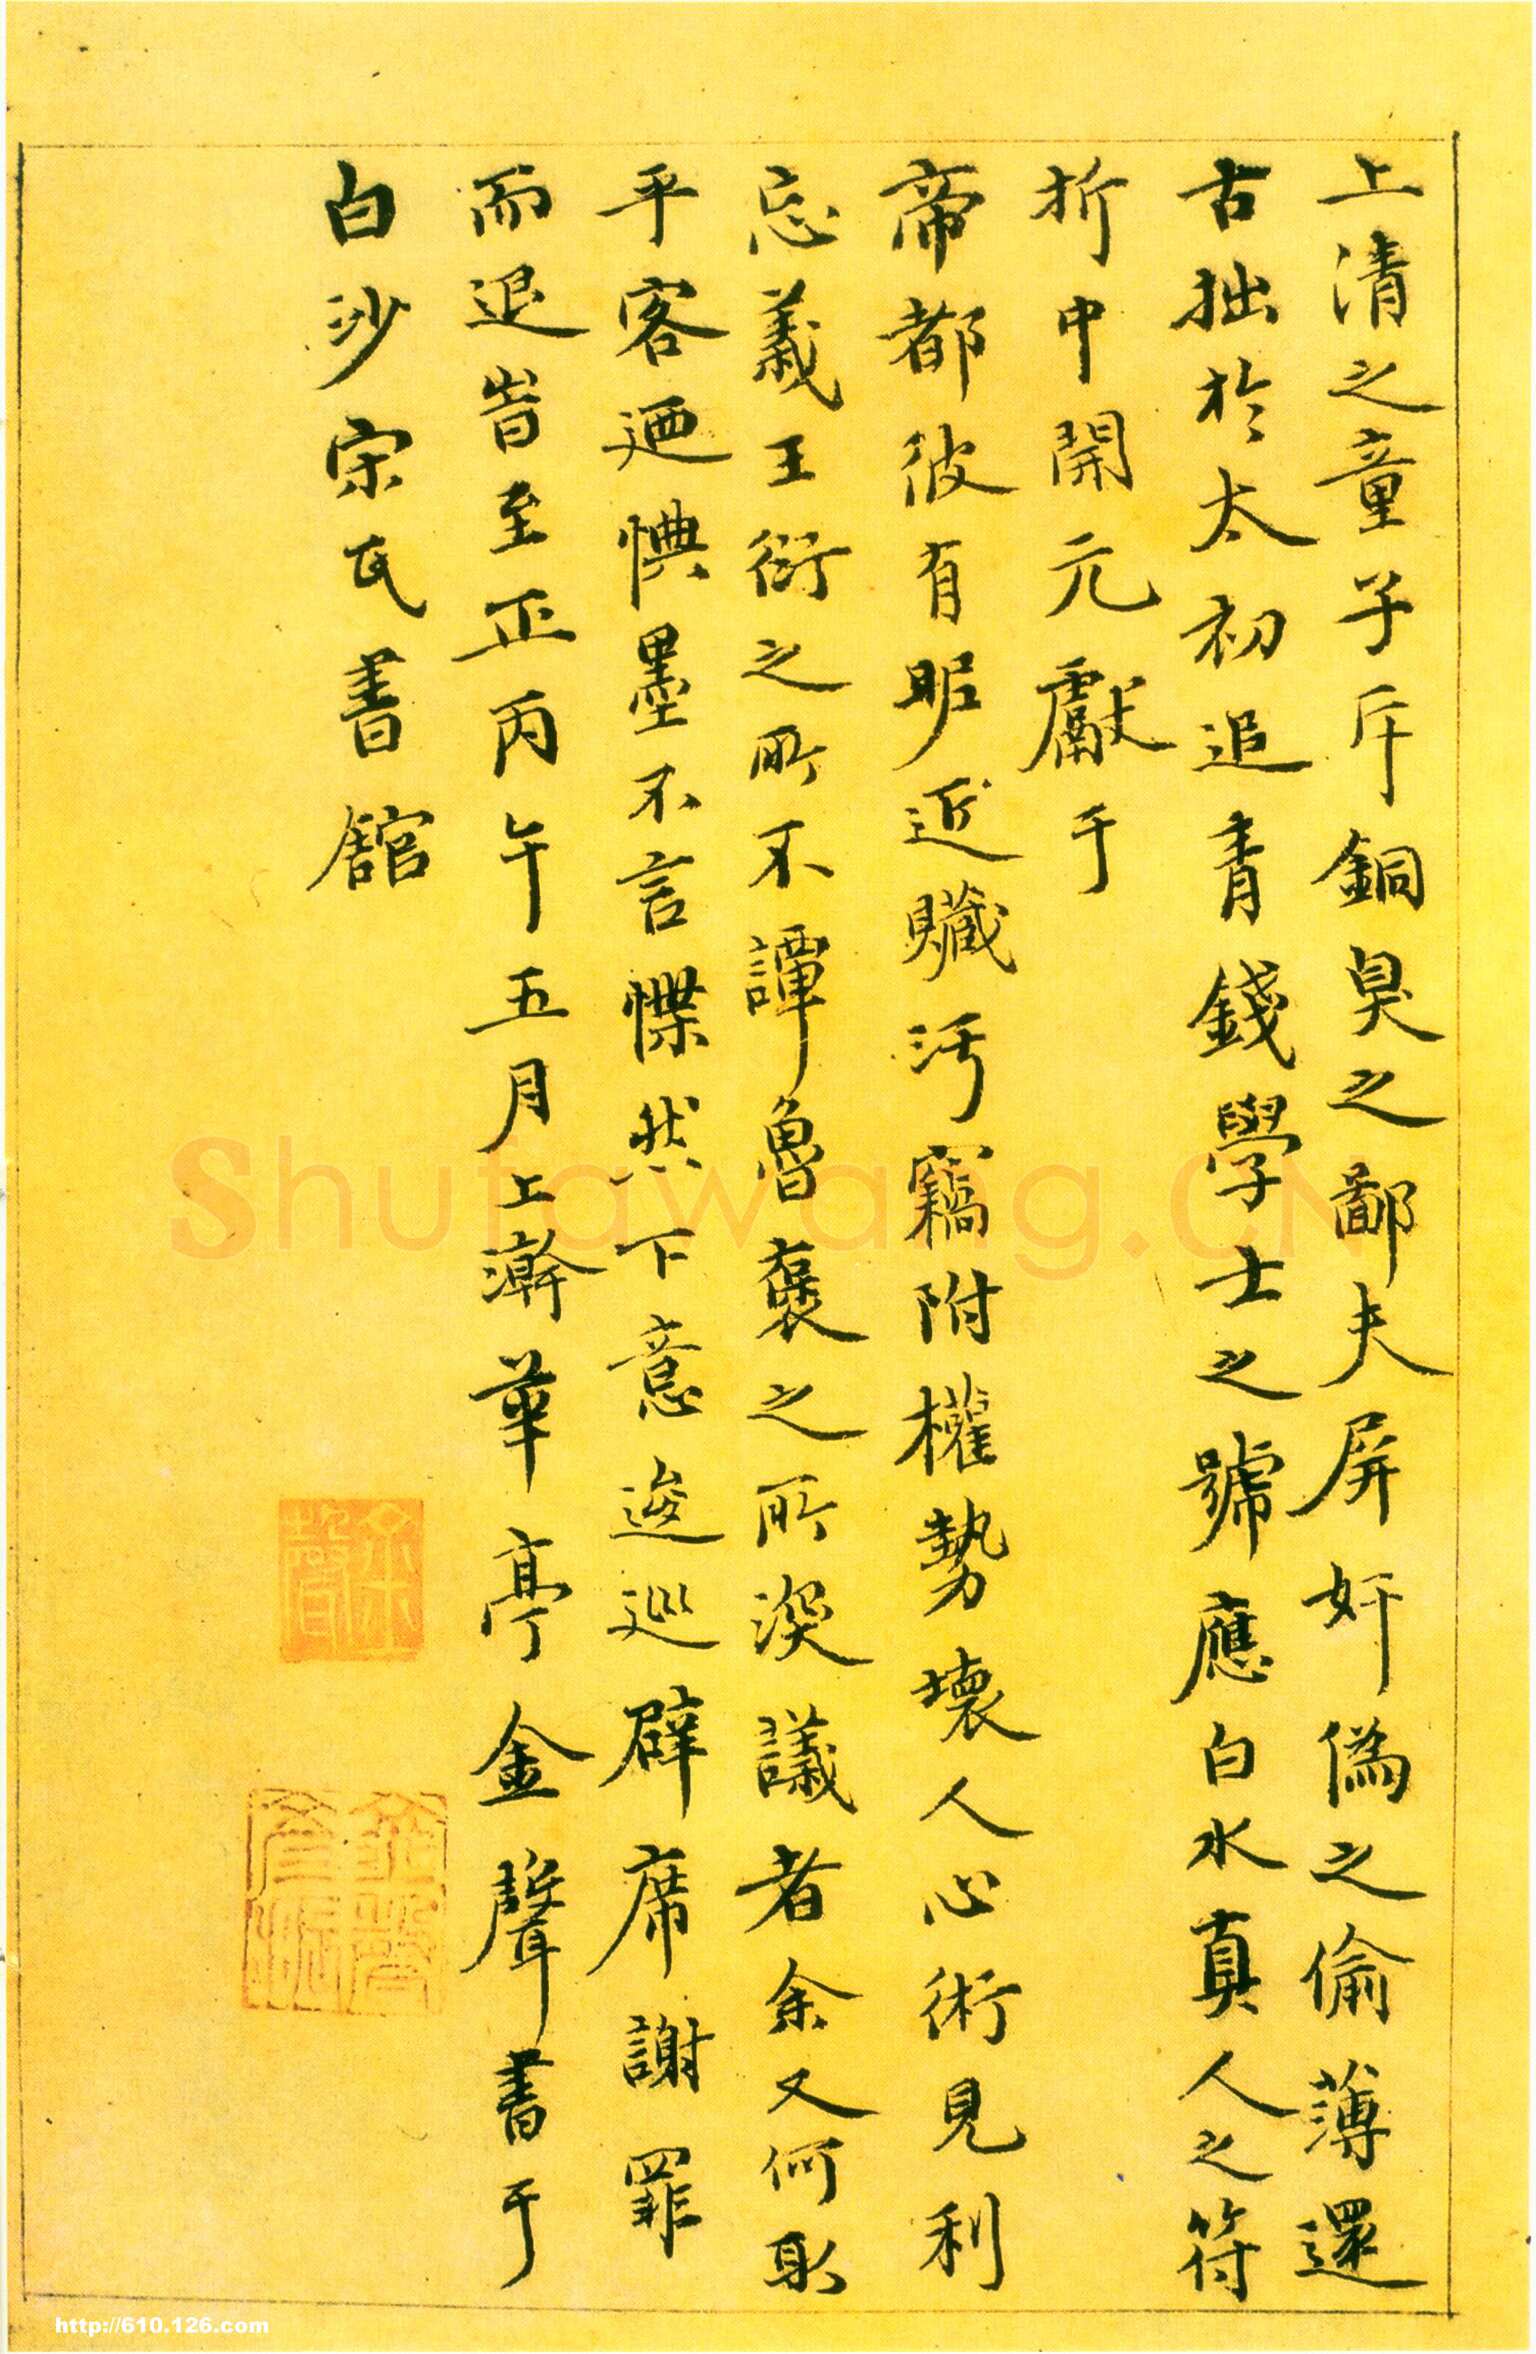 上清之童子斥銅臭之鄙夫屏奸偽之倫薄還
古拙於太初追青錢學士之號應白水真人之符
折中開元獻于
帝都彼有昵近贓汚竊附權勢壞人心術見利
忘義王衍之所不譚魯褒之所深議者余又何取
乎客迺惧墨不言惵然下意逡巡辟席謝罪
而退旹至正丙午五月上澣華亭金聲書于
白沙宋氏書舘
Shufawang.CN
http://610.126.com